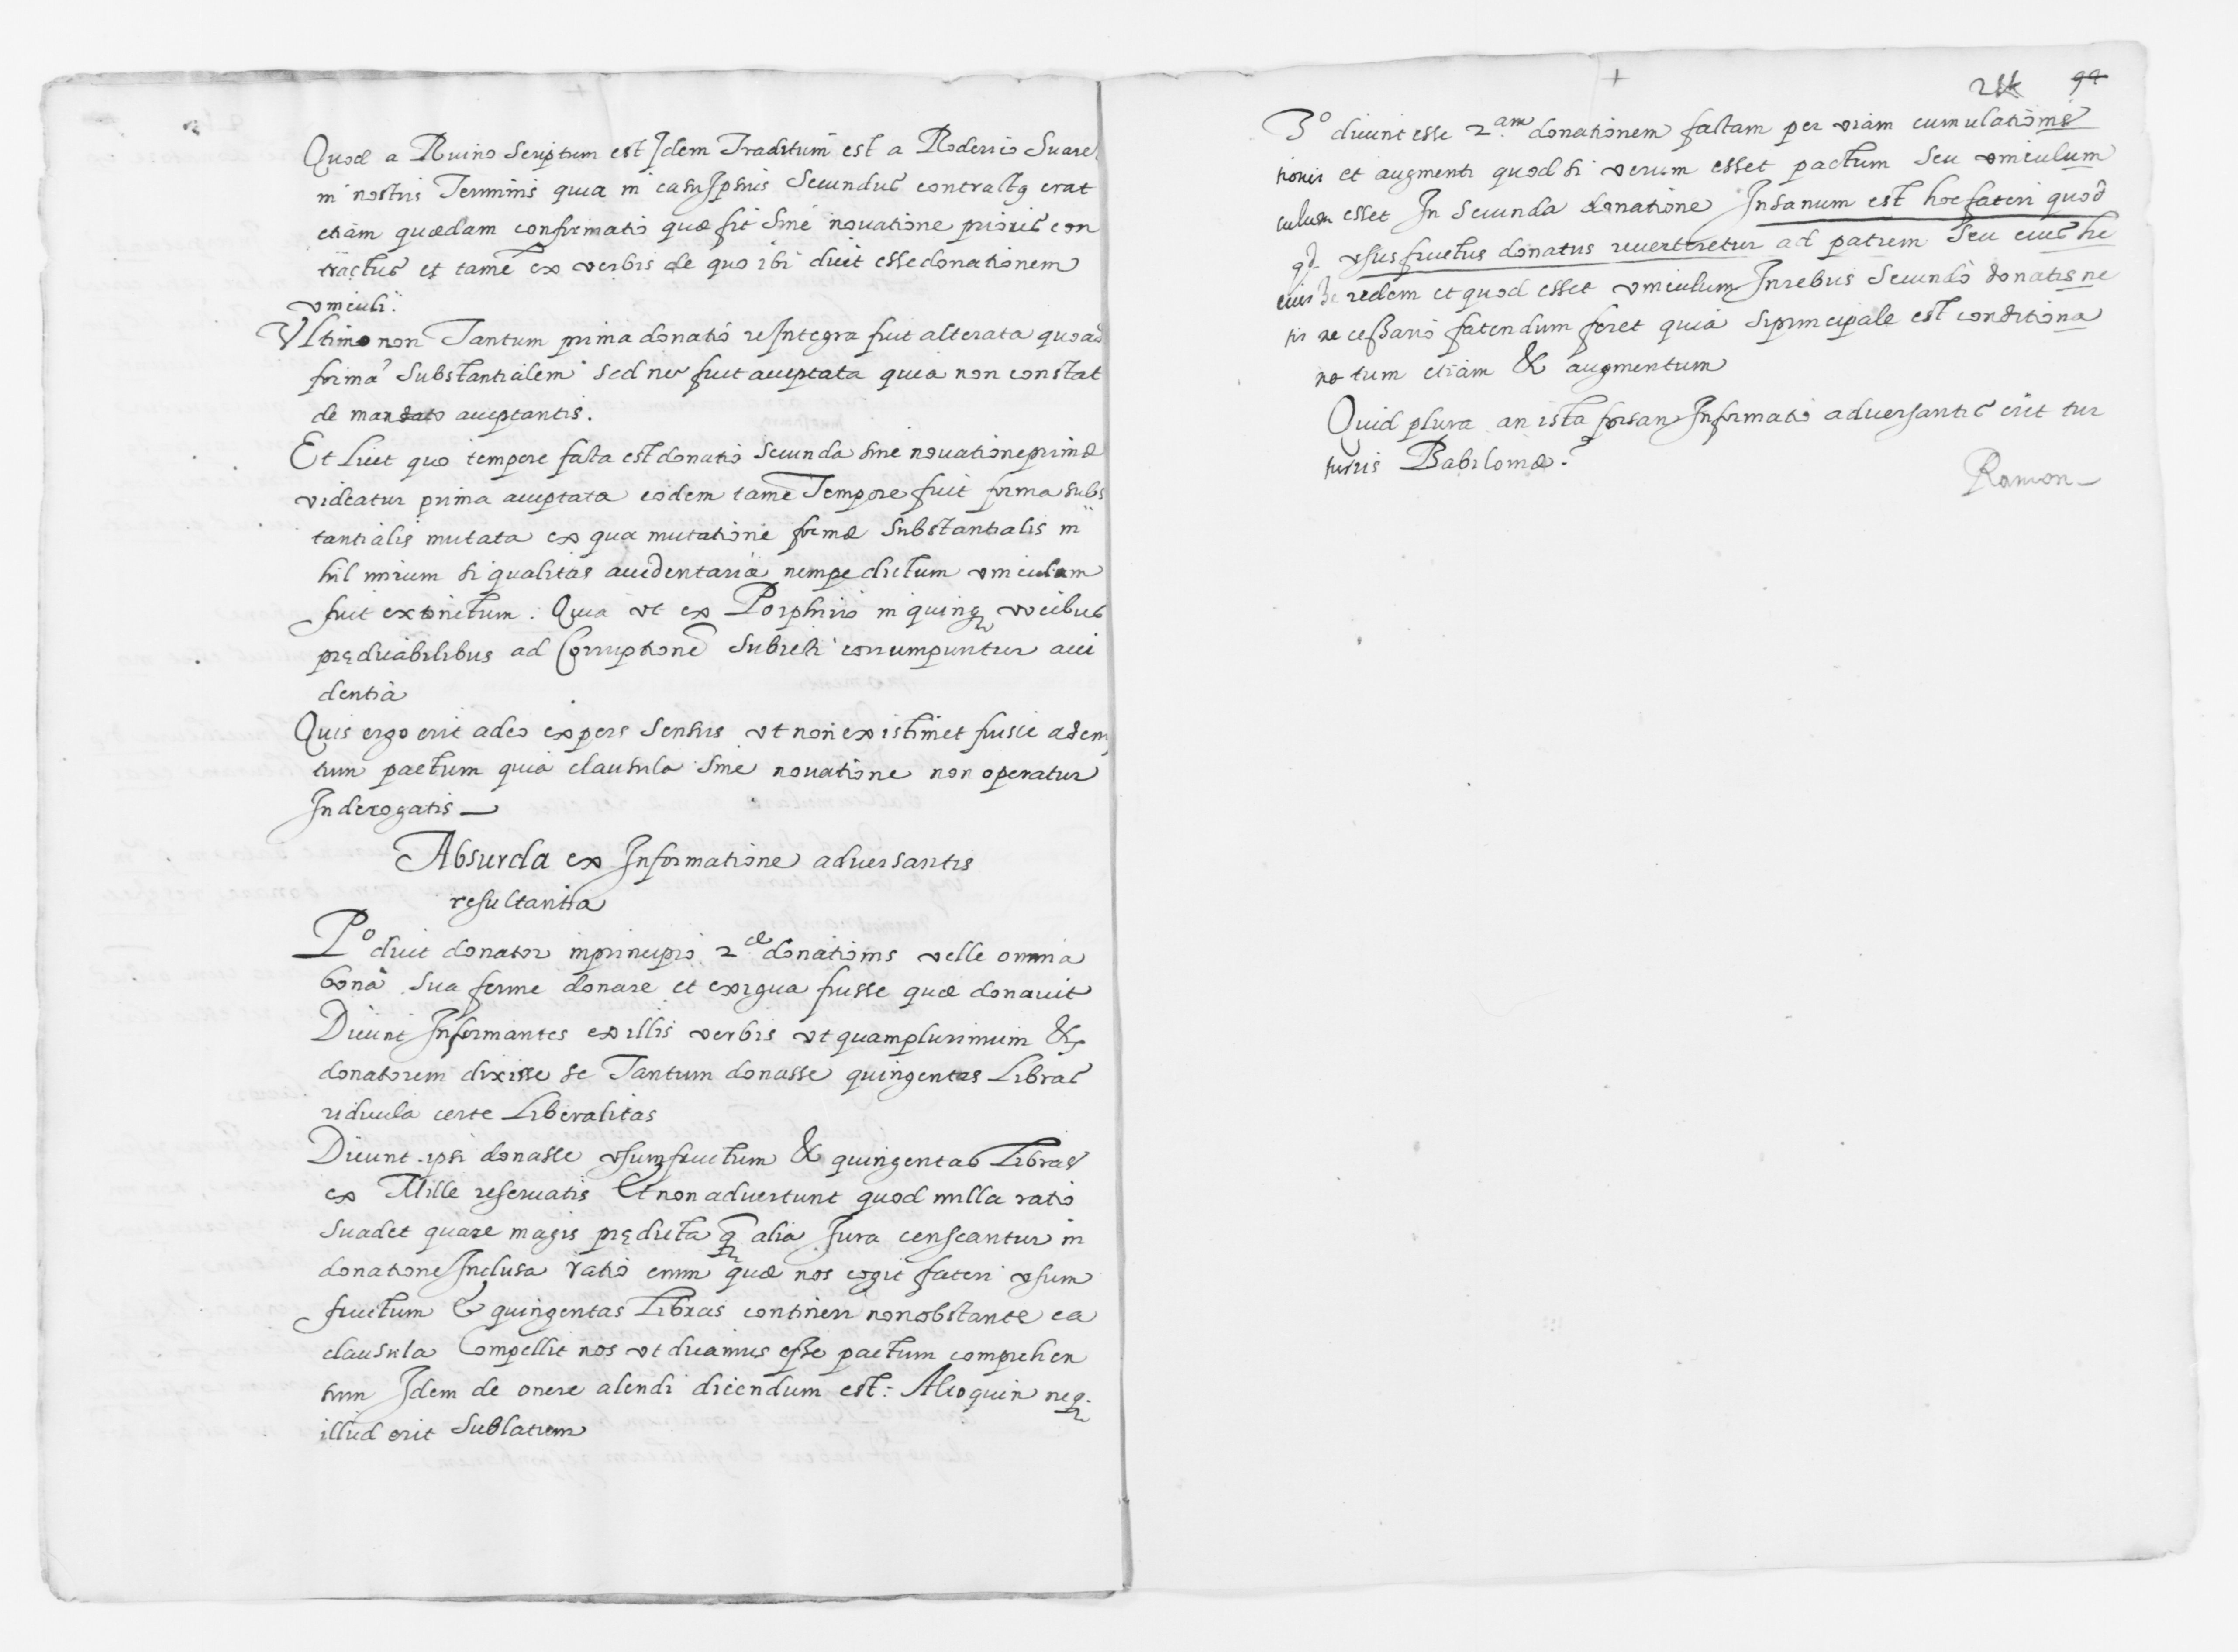 Quod a Ruino Scriptum est Idem Traditum est a Roderico Suare
in nostris Terminis quia in casu Ipsius Secundus contractq erat
etiam quædam confirmatio quæ fit Sine novatione prioris con
tractus et tamē ex verbis de quo ibi dicit esse donationem
vinculi.
Ultimo non Tantum prima donatio re Integra fuit alterata quoad
formā Substantialem Sed nec fuit acceptata quia non constat
de mandato acceptantis.
Et Licet quo tempore facta est donatio Secunda sine novatione primæ
videatur prima acceptata eodem tamē Tempore fuit forma subs
tantialis mutata ex qua mutatione formæ Substantialis ni
hil mirum si qualitas accidentaria nempe dictum vinculum
fuit extinctum. Quia ut ex Porphirio in quinq vocibus
prędicabilibus ad Corruptionē Subiecti corrumpuntur acci
dentia
Quis ergo erit adeo expers Sensus ut non existimet fuisse adem
tum pactum quia clausula Sine novatione non operatur
In derogatis
Absurda ex Informatione adversantis
resultantia
Pº dicit donator in principio 2æ donationis velle omnia
bona Sua ferme donare et exigua fuisse quæ donavit
Dicunt Informantes ex illis verbis ut quamplurimum &
donatorem dixisse se Tantum donasse quingentas Libras
ridicula certe Liberalitas
Dicunt ipsi donasse usumfructum & quingentas Libras
ex Mille reservatis Et non advertunt quod nulla ratio
Suadet quare magis prędicta q̄ alia Jura censeantur in
donatione Inclusa ratio enim quæ nos cogit fateri usum
fructum & quingentas Libras contineri non obstante ea
clausula Compellit nos ut dicamus esse pactum comprehen
sum Idem de onere alendi dicendum est: Alioquin neq.
illud erit Sublatum
99
3º dicunt esse 2.am donationem factam per viam cumulationis
tionis et augmenti quod si verum esset pactum Seu vinculum
culum esset In Secunda donatione Insanum est hoc fateri quod
qd usus fructus donatus reverteretur ad patrem Seu eius he
eius he redem et quod esset vinculum In rebus Secundo donatis ne
tis necessario fatendum foret quia Si principale est conditiona
na tum etiam & augmentum
Quid plura an ista forsan Informatio adversantis erit tur
turris Babiloniæ?
Ramon